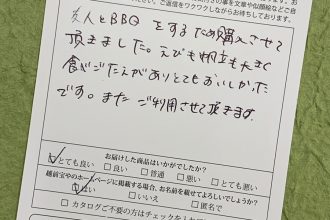 ご返信をワクワクしながらお待ちしております。
友人とBBQをするため購入させて
頂きました。えびも帆立も大きく
食べごたえがありとてもおいしかった
です。また ご利用させて頂きます。
お届けした商品はいかがでしたか?
☑とても良い □良い □普通 □悪い □とても悪い
越前宝やのホームページに掲載する場合、お名前を載せてよろしいでしょうか?
☑はい □いいえ □匿名で
□カタログご不要の方はチェックを